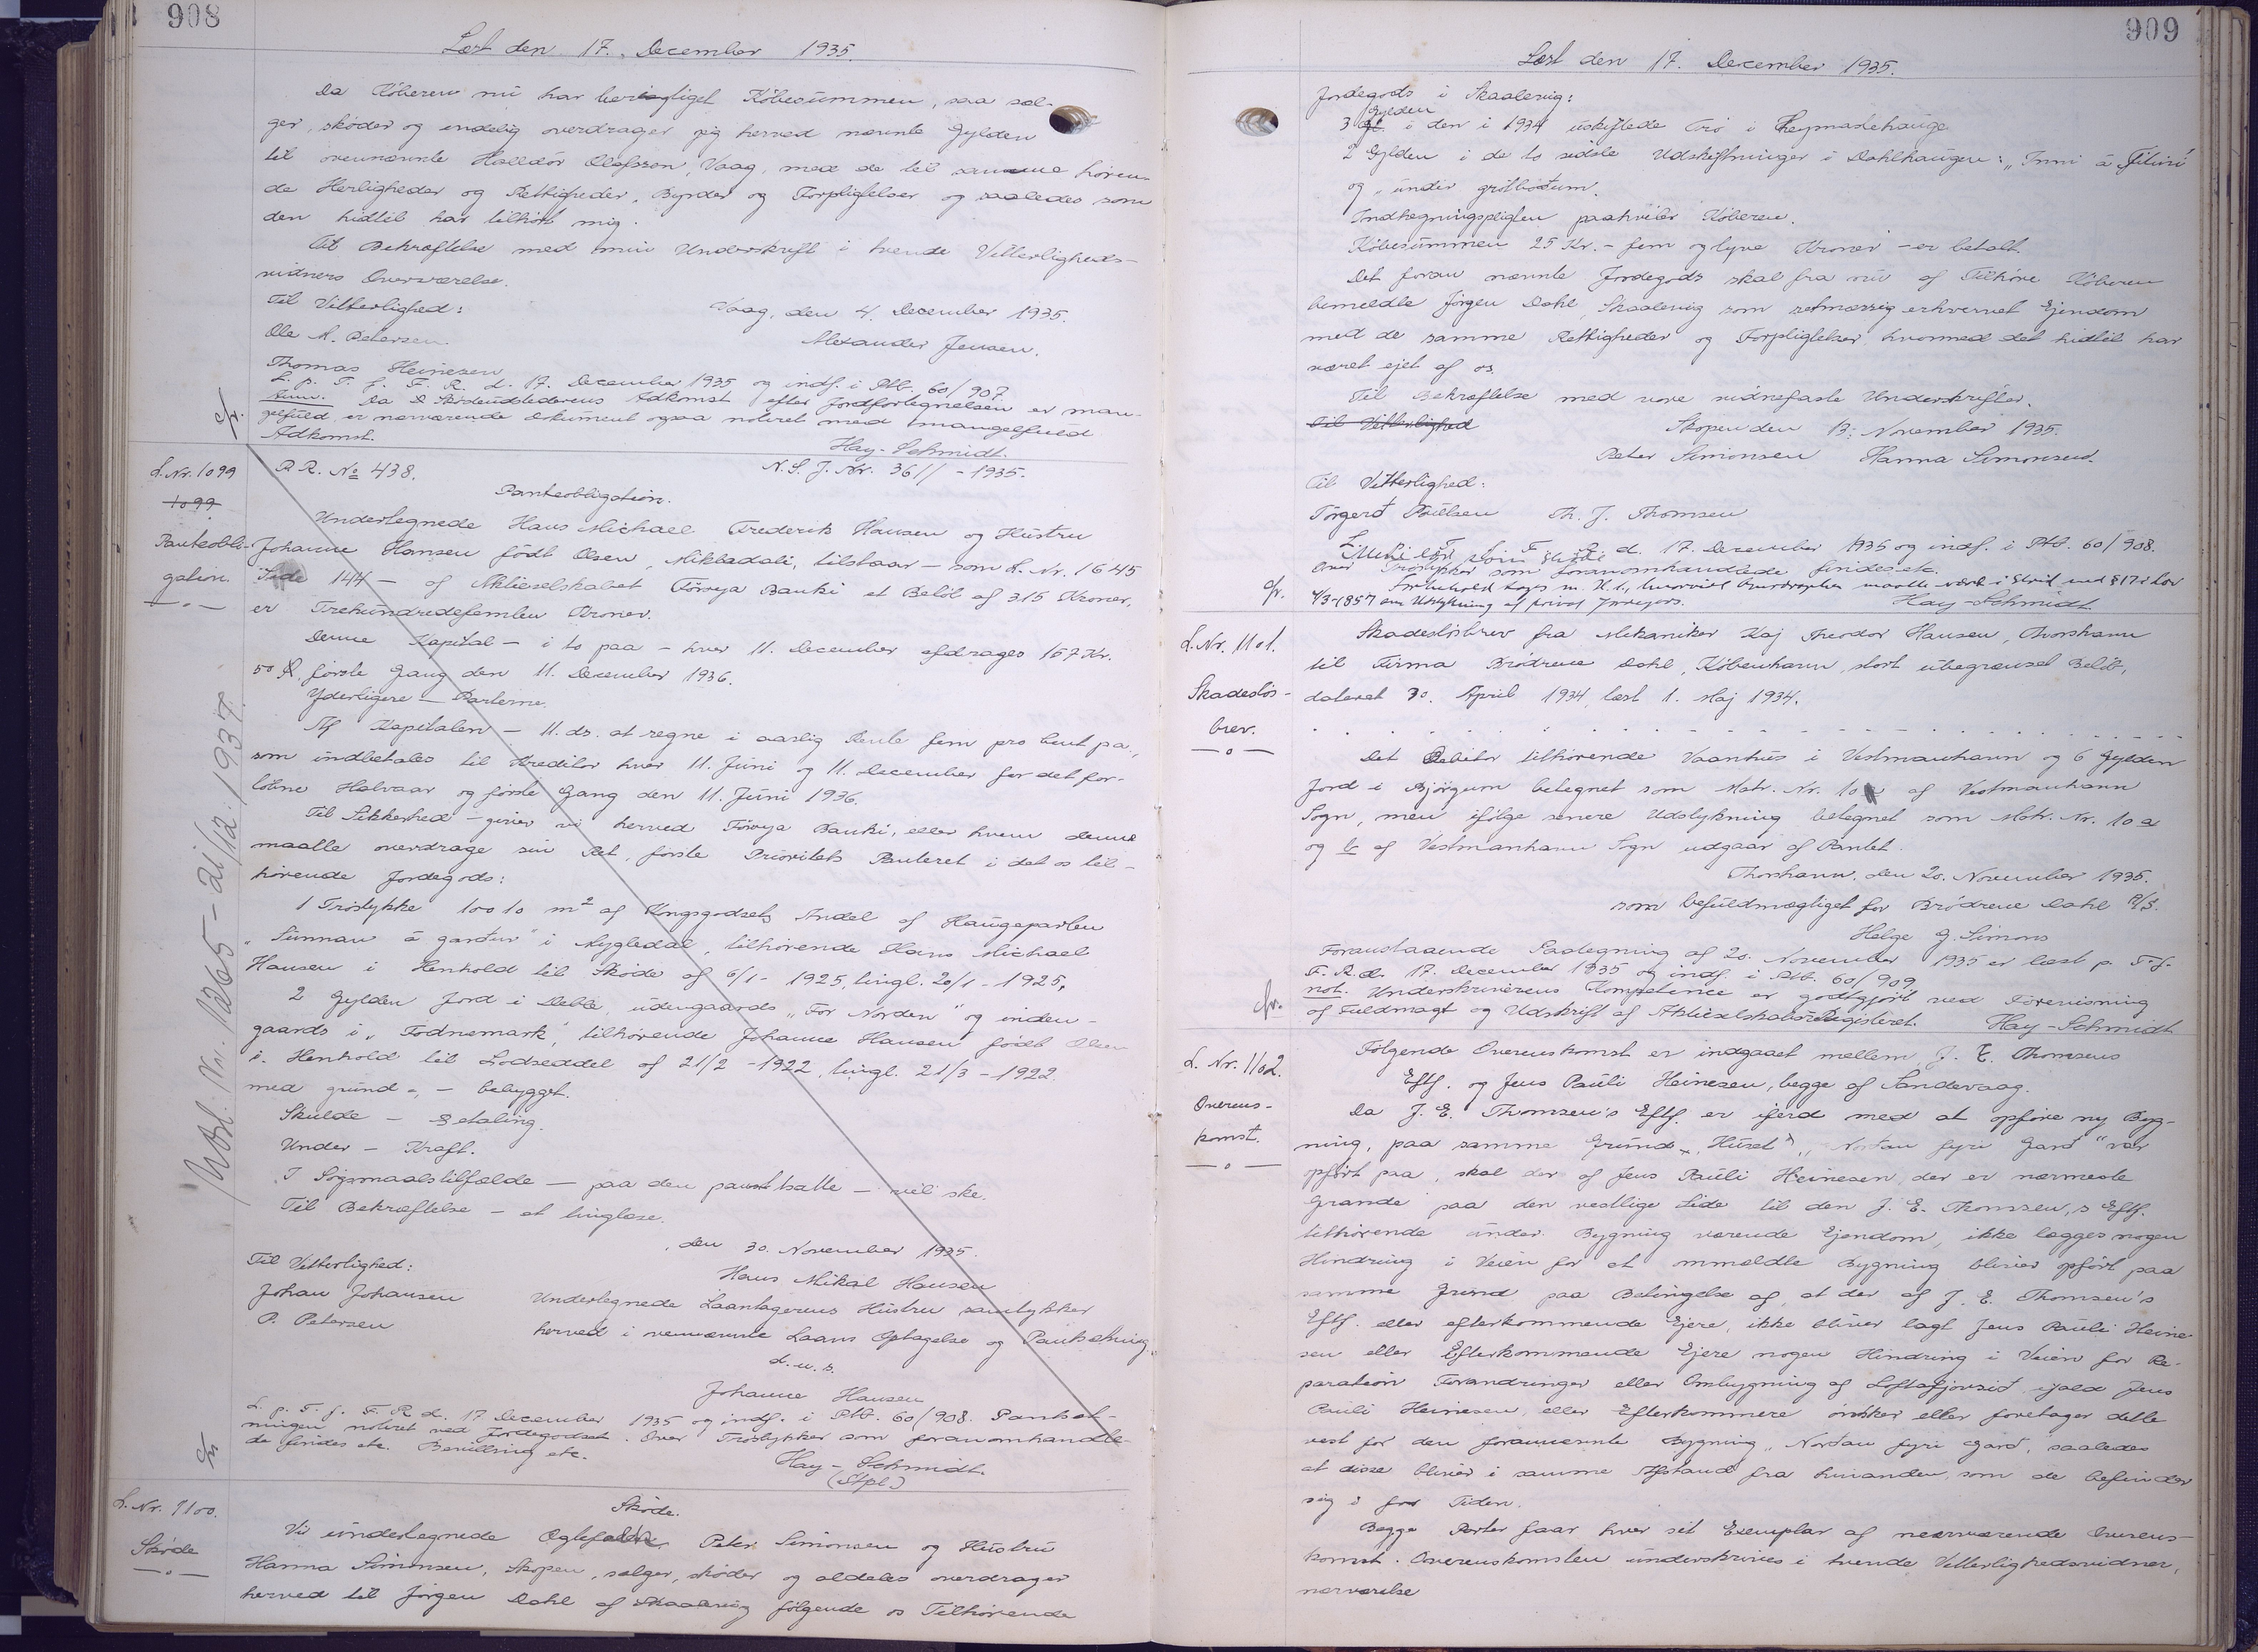 908
Læst den 17. December 1935.
Da Köberen nu har berigtiget Köbesummen, saa sæl-
ger, skøder og endelig overdrager jeg herved nævnte Gylden
til ovennævnte Halldór Olafsson, Vaag, med de til samme høren-
de Herligheder og Rettigheder, Byrder og Forpligtelser og saaledes som
den hidtil har tilhørt mig.
Til Bekræftelse med min Underskrift i tvende Vitterligheds-
vidners Overværelse.
Til Vitterlighed: Vaag, den 4. December 1935.
Ole M. Petersen. Alexander Jensen.
Thomas Heinesen
L. p. T. f. F. R. d. 17. December 1935 og indf. i Ptb. 60/907.
Anm. Da Skødeudstederens Adkomst efter Jordfortegnelsen er man-
gelfuld er nærværende Dokument ogsaa noteret med mangelfuld
Adkomst. Hay-Schmidt.
cfr.
L. Nr. 1099
1099
Panteobli-
gation.
R R. No 438. N. S. J. Nr. 36 // - 1935.
Panteobligation.
Undertegnede Hans Michael Frederik Hansen og Hustru
Johanne Hansen født Olsen, Mikladali, tilstaar – som L. Nr. 1645
Side 144 – af Aktieselskabet Föroya Banki et Beløb af 315 Kroner,
er Trehundredefemten Kroner.
Denne Kapital – i to paa – hver 11. December afdrages 157 Kr.
50 Ø, første Gang den 11. December 1936.
Yderligere – Parterne.
Af Kapitalen – 11. ds. at regne i aarlig Rente fem pro Cent p.a.,
som indbetales til Kreditor hver 11. Juni og 11. December for det for-
løbne Halvaar og første Gang den 11. Juni 1936.
Til Sikkerhed – giver vi herved Föroya Banki, eller hvem denne
maatte overdrage sin Ret, første Prioritets Panteret i det os til-
hørende Jordegods:
1 Trøstykke 10010 m2 af Kongsgodsets Andel af Haugeparten
"Sunnan á garður" i Mygledal, tilhørende Hans Michael
Hansen i Henhold til Skøde af 6/1 - 1925, tingl. 20/1 - 1925,
2 Gylden Jord i Deble, udengaards "For Norden" og inden-
gaards i "Fodnemark", tilhørende Johanne Hansen født Olsen
i Henhold til Lodseddel af 21/2 - 1922, tingl. 21/3 - 1922
med grund-, – bebygget.
Skulde – Betaling.
Under – Kraft.
I Søgsmaalstilfælde – paa den pantsatte – vil ske.
Til Bekræftelse – at tinglæse.
, den 30. November 1935.
Til Vitterlighed: Hans Mikal Hansen
Johan Johansen Undertegnede Laantagerens Hustru samtykker
P. Petersen herved i nævnte Laans Optagelse og Pantsætning
d. u. s.
Johanne Hansen
L. p. T. f. F. R d. 17. December 1935 og indf. i Ptb. 60/908. Pantsæt-
ningen noteret ved Jordegodset. Over Trøstykker som foranomhandle-
de findes etc. Bevilling etc. Hay-Schmidt.
(Stpl)
cfr
Modt. Nr. 1265 - 21/12. 1937.
L. Nr. 1100.
Skøde
Skøde.
Vi undertegnede Ægtefolk Peter Simonsen og Hustru
Hanna Simonsen, Skopen, sælger, skøder og aldeles overdrager
herved til Jørgen Dahl af Skaalevig følgende os Tilhørende
909
Læst den 17. December 1935.
Jordegods i Skaalevig:
Gylden
3 i den i 1934 udskiftede Trø i Heymastehauge
2 Gylden i de to sidste Udskiftninger i Dahlhaugen: "Inni á Fitini"
og "undir grótbotum.
Indhegningspligten paahviler Køberen.
Købesummen 25 Kr. - fem og tyve Kroner - er betalt.
Det foran nævnte Jordegods skal fra nu af Tilhøre Köberen
bemeldte Jørgen Dahl, Skaalevig som retmæssig erhvervet Ejendom
med de samme Rettigheder og Forpligtelser, hvormed det hidtil har
været ejet af os.
Til Bekræftelse med vore vidnefaste Underskrifter.
Til Vitterlighed Skopen den 13. November 1935.
Peter Simonsen Hanna Simonsen.
Til Vitterlighed:
Torgerd Poulsen Th. J. Thomsen
L. p. T. f. F. R. d. 17. December 1935 og indf. i Ptb. 60/908.
Over Trøstykker som foranomhandlede findes etc.
Forbehold tages m. H. t., hvorvidt Overdragelsen maatte være i Strid med § 17 i Lov
4/3-1857 om Udstykning af privat Jordegods. Hay-Schmidt
cfr.
L. Nr. 1101.
Skadesløs-
brev.
Skadesløsbrev fra Mekaniker Kaj Theodor Hansen, Thorshavn
til Firma Brödrene Dahl, København, stort ubegrænset Beløb,
dateret 30. April 1934, læst 1. Maj 1934.
Det Debitor tilhørende Vaanhus i Vestmanhavn og 6 Gylden
Jord i Bjørgum betegnet som Matr. Nr. 10 af Vestmanhavn
Sogn, men ifølge senere Udstykning betegnet som Matr. Nr. 10 a
og b af Vestmanhavn Sogn udgaar af Pantet.
Thorshavn, den 20. November 1935.
som befuldmægtiget for Brödrene Dahl A/S.
Helge G. Simons
Foranstaaende Paategning af 20. November 1935 er læst p. T. f.
F. R. d. 17. December 1935 og indf. i Ptb. 60/909
not. Underskriverens Kompetence er godtgjort ved Forevisning
af Fuldmagt og Udskrift af Aktieselskabsregisteret. Hay-Schmidt
cfr.
L. Nr. 1102.
Overens-
komst.
Følgende Overenskomst er indgaaet mellem J. E. Thomsens
Eftf. og Jens Pauli Heinesen, begge af Sandevaag.
Da J. E. Thomsen's Eftf. er ifærd med at opføre ny Byg-
ning, paa samme Grund, Huset "Nordan fyri Gard" var
opført paa, skal der af Jens Pauli Heinesen, der er nærmeste
Grande paa den vestlige Side til den J. E. Thomsen,s Eftf.
tilhørende under Bygning værende Ejendom, ikke lægges nogen
Hindring i Veien for at nmeldte Bygning bliver opført paa
samme Grund paa Betingelse af, at der af J. E. Thomsen's
Eftf. eller efterkommende Ejere, ikke bliver lagt Jens Pauli Heine
sen eller Efterkommende Ejere nogen Hindring i Veien for Re-
paration Forandringer eller Ombygning af Loftafjorsid, ifald Jens
Pauli Heinesen, eller Efterkommere ønsker eller foretager dette
vest for den forannævnte Bygning "Nordan fyri Gard, saaledes
at disse bliver i samme Afstand fra hinanden, som de befinder
sig i for Tiden.
Begge Parter faar hver sit Exemplar af nærværende Overens-
komst. Overenskomsten underskrives i tvende Vitterlighedsvidner,
nærværelse